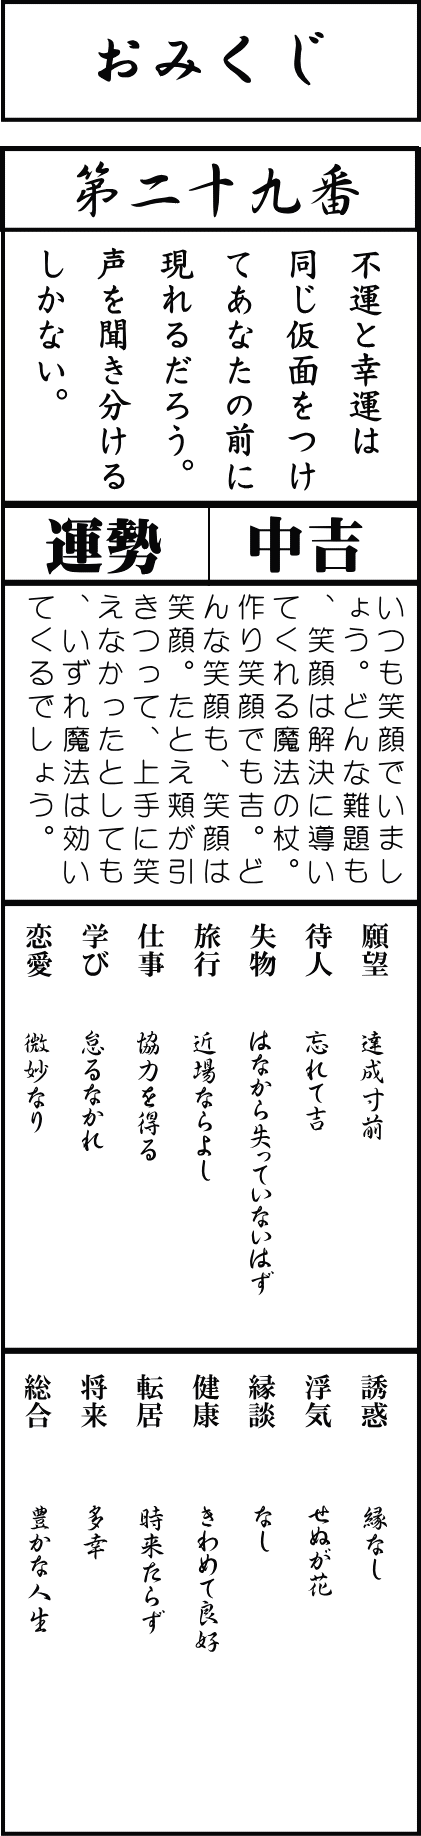 おみくじ
第二十九番
不運と幸運は
同じ仮面をつけ
てあなたの前に
現れるだろう。
声を聞き分ける
しかない。
中吉
運勢
いつも笑顔でいまし
ょう。どんな難題も
、笑顔は解決に導い
てくれる魔法の杖。
作り笑顔でも吉。ど
んな笑顔も、笑顔は
笑顔。たとえ頬が引
きつって、上手に笑
えなかったとしても
、いずれ魔法は効い
てくるでしょう。
願望 達成寸前
待人 忘れて吉
失物 はなから失っていないはず
旅行 近場ならよし
仕事 協力を得る
学び 怠るなかれ
恋愛 微妙なり
誘惑 縁なし
浮気 せぬが花
縁談 なし
健康 きわめて良好
転居 時来たらず
将来 多幸
総合 豊かな人生